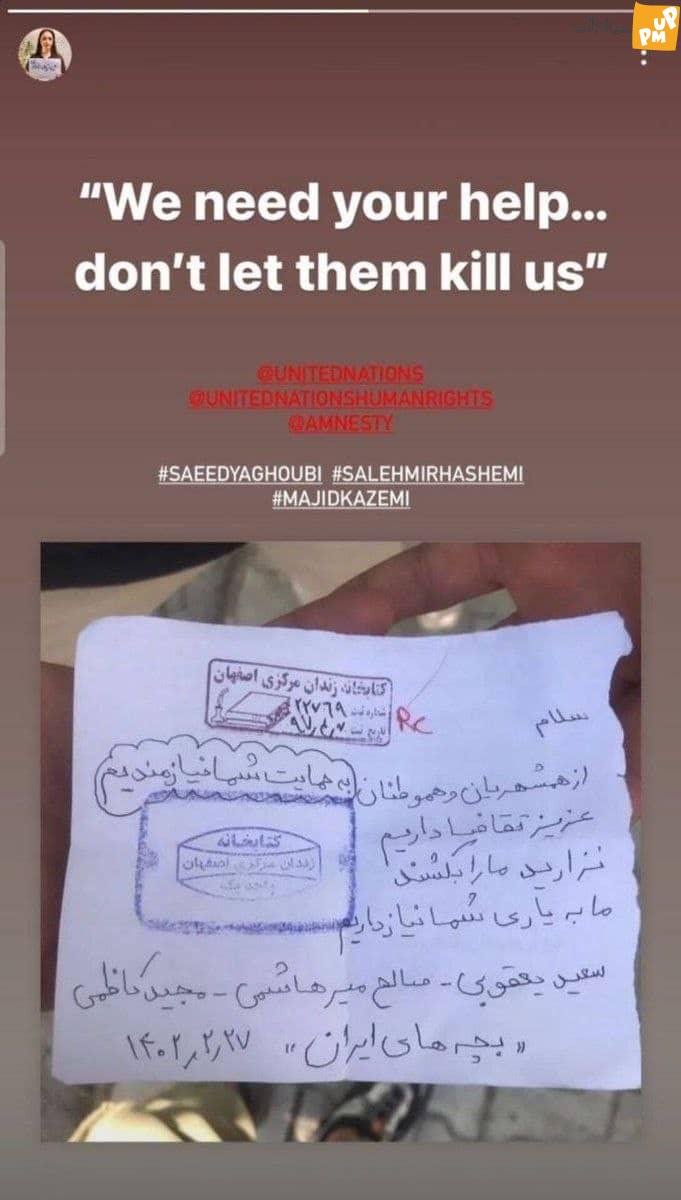 UP
PM
“We need your help...
don’t let them kill us”
@UNITEDNATIONS
@UNITEDNATIONSHUMANRIGHTS
@AMNESTY
#SAEEDYAGHOUBI #SALEHMIRHASHEMI
#MAJIDKAZEMI
کتابخانه زندان مرکزی اصفهان
شماره ثبت ۲۲۷٦۹
تاریخ ثبت
RC
سلام
از همشهریان و هموطنان
به حمایت شما نیازمندیم
عزیز تقاضا داریم
نزارید ما را بکشند
ما به یاری شما نیاز داریم
کتابخانه
زندان مرکزی اصفهان
سعید یعقوبی - صالح میرهاشمی - مجید کاظمی
«بچه های ایران» ۱۴۰۲٫۲٫۲۷